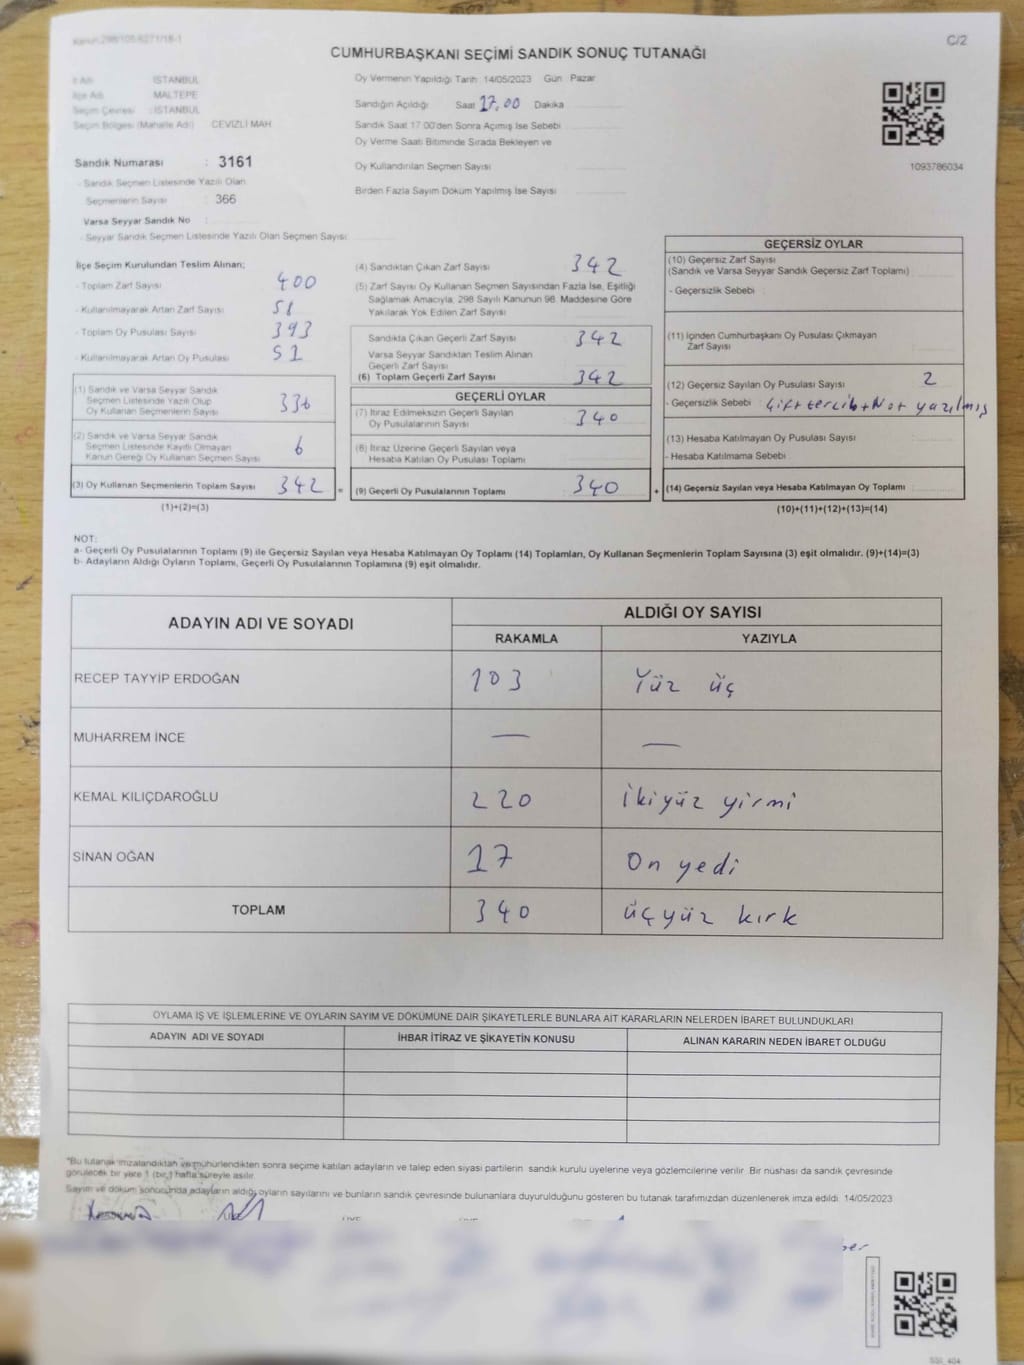 Kanun:298/105-6271/18-1
C/2
CUMHURBAŞKANI SEÇİMİ SANDIK SONUÇ TUTANAĞI
İl Adı : İSTANBUL
İlçe Adı : MALTEPE
Seçim Çevresi : İSTANBUL
Seçim Bölgesi (Mahalle Adı) : CEVİZLİ MAH
Sandık Numarası : 3161
- Sandık Seçmen Listesinde Yazılı Olan
Seçmenlerin Sayısı : 366
Varsa Seyyar Sandık No :
- Seyyar Sandık Seçmen Listesinde Yazılı Olan Seçmen Sayısı:
Oy Vermenin Yapıldığı Tarih: 14/05/2023 Gün: Pazar
Sandığın Açıldığı Saat 17.00 Dakika
Sandık Saat 17:00'den Sonra Açımış İse Sebebi
Oy Verme Saati Bitiminde Sırada Bekleyen ve
Oy Kullandırılan Seçmen Sayısı
Birden Fazla Sayım Döküm Yapılmış İse Sayısı
1093786034
İlçe Seçim Kurulundan Teslim Alınan;
- Toplam Zarf Sayısı 400
- Kullanılmayarak Artan Zarf Sayısı 58
- Toplam Oy Pusulası Sayısı 393
- Kullanılmayarak Artan Oy Pusulası 51
(1) Sandık ve Varsa Seyyar Sandık
Seçmen Listesinde Yazılı Olup
Oy Kullanan Seçmenlerin Sayısı 336
(2) Sandık ve Varsa Seyyar Sandık
Seçmen Listesinde Kayıtlı Olmayan
Kanun Gereği Oy Kullanan Seçmen Sayısı 6
(3) Oy Kullanan Seçmenlerin Toplam Sayısı 342 =
(1)+(2)=(3)
(4) Sandıktan Çıkan Zarf Sayısı 342
(5) Zarf Sayısı Oy Kullanan Seçmen Sayısından Fazla İse, Eşitliği
Sağlamak Amacıyla, 298 Sayılı Kanunun 98. Maddesine Göre
Yakılarak Yok Edilen Zarf Sayısı
Sandıkta Çıkan Geçerli Zarf Sayısı 342
Varsa Seyyar Sandıktan Teslim Alınan
Geçerli Zarf Sayısı
(6) Toplam Geçerli Zarf Sayısı 342
GEÇERLİ OYLAR
(7) İtiraz Edilmeksizin Geçerli Sayılan
Oy Pusulalarının Sayısı 340
(8) İtiraz Üzerine Geçerli Sayılan veya
Hesaba Katılan Oy Pusulası Toplamı
(9) Geçerli Oy Pusulalarının Toplamı 340 +
GEÇERSİZ OYLAR
(10) Geçersiz Zarf Sayısı
(Sandık ve Varsa Seyyar Sandık Geçersiz Zarf Toplamı)
- Geçersizlik Sebebi :
(11) İçinden Cumhurbaşkanı Oy Pusulası Çıkmayan
Zarf Sayısı
(12) Geçersiz Sayılan Oy Pusulası Sayısı 2
- Geçersizlik Sebebi : Çift tercih+Not yazılmış
(13) Hesaba Katılmayan Oy Pusulası Sayısı
- Hesaba Katılmama Sebebi :
(14) Geçersiz Sayılan veya Hesaba Katılmayan Oy Toplamı :
(10)+(11)+(12)+(13)=(14)
NOT:
a- Geçerli Oy Pusulalarının Toplamı (9) ile Geçersiz Sayılan veya Hesaba Katılmayan Oy Toplamı (14) Toplamları, Oy Kullanan Seçmenlerin Toplam Sayısına (3) eşit olmalıdır. (9)+(14)=(3)
b- Adayların Aldığı Oyların Toplamı, Geçerli Oy Pusulalarının Toplamına (9) eşit olmalıdır.
ADAYIN ADI VE SOYADI
ALDIĞI OY SAYISI
RAKAMLA YAZIYLA
RECEP TAYYİP ERDOĞAN 103 Yüz üç
MUHARREM İNCE — —
KEMAL KILIÇDAROĞLU 220 İkiyüz yirmi
SİNAN OĞAN 17 On yedi
TOPLAM 340 üçyüz kırk
OYLAMA İŞ VE İŞLEMLERİNE VE OYLARIN SAYIM VE DÖKÜMÜNE DAİR ŞİKAYETLERLE BUNLARA AİT KARARLARIN NELERDEN İBARET BULUNDUKLARI
ADAYIN ADI VE SOYADI İHBAR İTİRAZ VE ŞİKAYETİN KONUSU ALINAN KARARIN NEDEN İBARET OLDUĞU
*Bu tutanak imzalandıktan ve mühürlendikten sonra seçime katılan adayların ve talep eden siyasi partilerin sandık kurulu üyelerine veya gözlemcilerine verilir. Bir nüshası da sandık çevresinde
görülecek bir yere 1 (bir) hafta süreyle asılır.
Sayım ve döküm sonucunda adayların aldığı oyların sayılarını ve bunların sandık çevresinde bulunanlara duyurulduğunu gösteren bu tutanak tarafımızdan düzenlenerek imza edildi. 14/05/2023